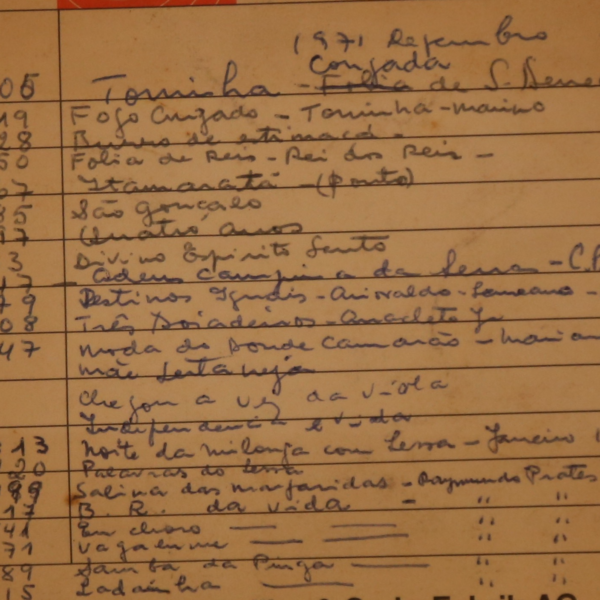 1971 Dezembro
Congada
05 Toninha - Folia de S.
19 Fogo Cruzado - Toninha - Marino
28 Burro de estimacó -
50 Folia de Reis - Rei dos Reis -
67 Itamaratá - (Ponto)
85 São Gonçalo
97 Quatro Anos
3 Divino Espirito Santo
17 - Adeus Campina da Serra - C.P
79 Destinos Iguais - Ariovaldo - Laureano -
08 Três Boiadeiros - Anacleto Jr
47 Moda do Bonde Camarão - Marian
mãe sertaneja
Chegou a vez da viola
Independencia é vida
13 Noite da milonga com Lessa - Janeiro
20 Palavras do Lessa
99 Salina das margaridas - Raymundo Prates
17 B. R. da vida - " "
41 Em choro " "
71 Vagalume " "
89 Samba da Pinga " "
15 Ladainha " "